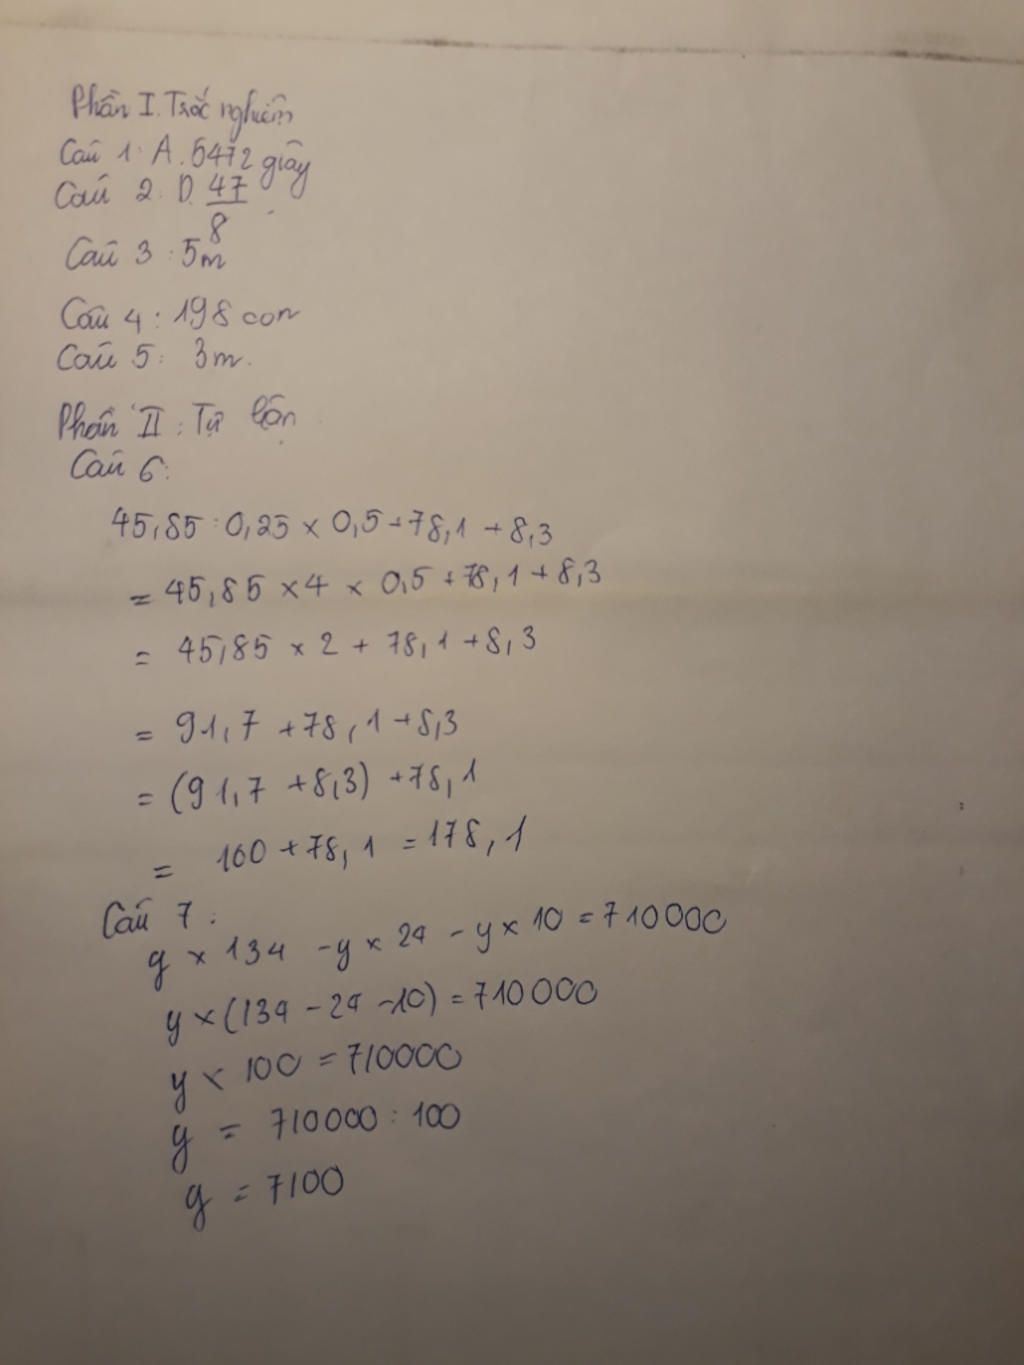 Phần I. Trắc nghiệm
Câu 1: A. 5472 giây
Câu 2: D. 47/8
Câu 3: 5m
Câu 4: 198 con
Câu 5: 3m.
Phần II: Tự lận
Câu 6:
45,85 : 0,25 × 0,5 + 78,1 + 8,3
= 45,85 × 4 × 0,5 + 78,1 + 8,3
= 45,85 × 2 + 78,1 + 8,3
= 91,7 + 78,1 + 8,3
= (91,7 + 8,3) + 78,1
= 100 + 78,1 = 178,1
Câu 7:
y × 134 - y × 24 - y × 10 = 710000
y × (134 - 24 - 10) = 710000
y × 100 = 710000
y = 710000 : 100
y = 7100